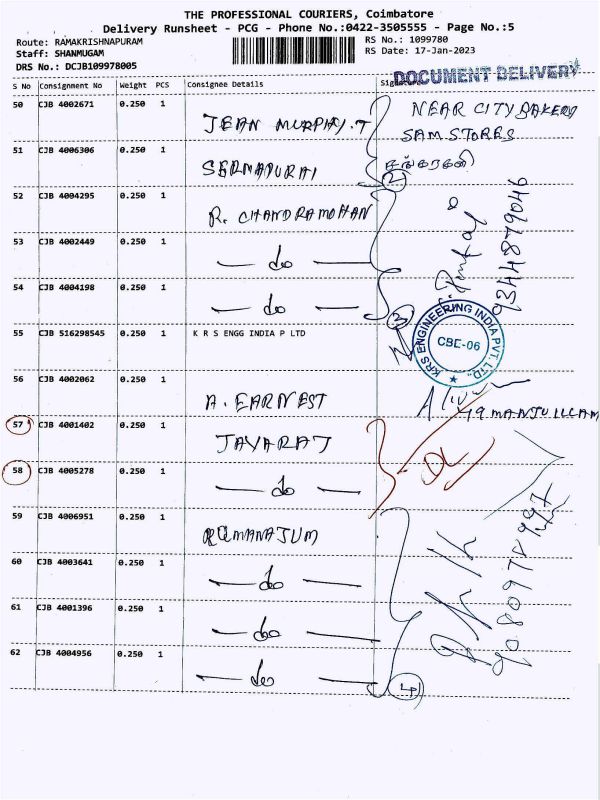 THE PROFESSIONAL COURIERS, Coimbatore
Delivery Runsheet - PCG - Phone No.:0422-3505555 - Page No.:5
Route: RAMAKRISHNAPURAM
RS No.: 1099780
Staff: SHANMUGAM
RS Date: 17-Jan-2023
DRS No.: DCJB109978005
DOCUMENT DELIVERY
S No Consignment No Weight PCS Consignee Details
50 CJB 4002671 0.250 1 JEAN MURPHY.T NEAR CITY BAKERY
SAM STORES
51 CJB 4006306 0.250 1
2
52 CJB 4004295 0.250 1 R. CHANDRAMOHAN
9344879046
53 CJB 4002449 0.250 1 — do —
54 CJB 4004198 0.250 1 — do —
3
55 CJB 516298545 0.250 1 K R S ENGG INDIA P LTD
KRS ENGINEERING INDIA PVT. LTD.
CBE-06
56 CJB 4002062 0.250 1 A. EARNEST
57 CJB 4001402 0.250 1 JAYARAJ
58 CJB 4005278 0.250 1 — do —
59 CJB 4006951 0.250 1
60 CJB 4003641 0.250 1 — do —
61 CJB 4001396 0.250 1 — do —
62 CJB 4004956 0.250 1 — do —
4